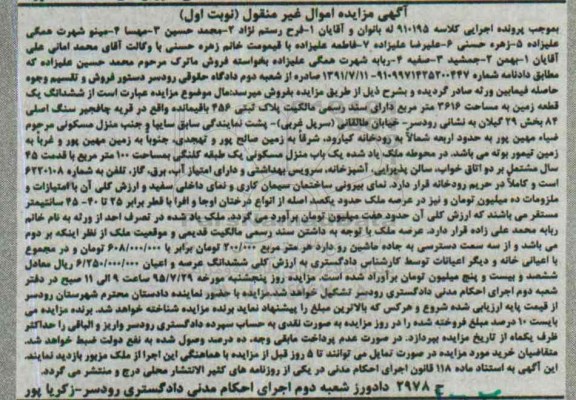 آگهی مزایده اموال غیر منقول (نوبت اول)
بموجب پرونده اجرایی کلاسه ۹۱۰۱۹۵ له بانوان و آقایان ۱-فرح رستم نژاد ۲-محمد حسین ۳-مهسا ۴-مینو شهرت همگی
علیزاده ۵-زهره حسنی ۶-علیرضا علیزاده ۷-فاطمه علیزاده با قیمومت خانم زهره حسنی با وکالت آقای محمد امانی علی
آقایان ۱-بهمن ۲-جمشید ۳-صفیه ۴-ربابه شهرت همگی علیزاده بخواسته فروش ماترک مرحوم محمد حسین علیزاده که
مطابق دادنامه شماره ۹۱۰۹۹۷۱۴۲۵۲۰۰۴۴۷-۱۳۹۱/۷/۱۱ صادره از شعبه دوم دادگاه حقوقی رودسر دستور فروش و تقسیم وجوه
حاصله فیمابین ورثه صادر گردیده و بشرح ذیل از طریق مزایده بفروش میرسد:مال موضوع مزایده عبارت است از ششدانگ یک
قطعه زمین به مساحت ۳۶۱۶ متر مربع دارای سند رسمی مالکیت پلاک ثبتی ۴۵۶ باقیمانده واقع در قریه چافجیر سنگ اصلی
۸۴ بخش ۲۹ گیلان به نشانی رودسر- خیابان طالقانی (سرپل غربی)- پشت نمایندگی سابق سایپا و جنب منزل مسکونی مرحوم
ضیاء مهین پور به حدود اربعه شمالاً به رودخانه کیارود، شرقاً به زمین صالح پور و تهجدی، جنوباً به زمین مهین پور و غرباً به
زمین تیمور بوته می باشد. در محوطه ملک یاد شده یک باب منزل مسکونی یک طبقه کلنگی بمساحت ۱۰۰ متر مربع با قدمت ۴۵
سال مشتمل بر دو اتاق خواب، سالن پذیرایی، آشپزخانه، سرویس بهداشتی و دارای امتیاز آب، برق، گاز، تلفن به شماره ۶۲۲۰۱۰۸
است و کاملاً در حریم رودخانه قرار دارد. نمای بیرونی ساختمان سیمان کاری و نمای داخلی سفید و ارزش کلی آن با امتیازات و
ملزومات ده میلیون تومان و نیز در عرصه ملک حدود یکصد اصله از انواع درختان اوجا و افرا با قطر برابر ۲۵ تا ۴۰- ۴۵ سانتیمتر
مستقر می باشند که ارزش کلی آن حدود هفت میلیون تومان برآورد می گردد. ملک یاد شده در تصرف احد از ورثه به نام خانم
ربابه محمد علی زاده قرار دارد. عرصه ملک با توجه به داشتن سند رسمی مالکیت قدیمی و موقعیت ملک از نظر اینکه بر دوم
می باشد و از سه سمت دسترسی به جاده ماشین رو دارد هر متر مربع ۲۰۰/۰۰۰ تومان برابر با ۶۰۸/۰۰۰/۰۰۰ تومان و در مجموع
با اعیانی خانه و دیگر اعیانات توسط کارشناس دادگستری به ارزش کلی ششدانگ عرصه و اعیان ۶/۲۵۰/۰۰۰/۰۰۰ ریال معادل
ششصد و بیست و پنج میلیون تومان برآوراد شده است. مزایده روز پنجشنبه مورخه ۹۵/۷/۲۹ ساعت ۹ الی ۱۱ صبح در دفتر
شعبه دوم اجرای احکام مدنی دادگستری رودسر تشکیل خواهد شد. مزایده با حضور نماینده دادستان محترم شهرستان رودسر
از قیمت پایه ارزیابی شده شروع و هرکس که بالاترین مبلغ را پیشنهاد نماید برنده مزایده شناخته خواهد شد. برنده مزایده می
بایست ۱۰ درصد مبلغ فروخته شده را در روز مزایده به صورت نقدی به حساب سپرده دادگستری رودسر واریز و الباقی را حداکثر
ظرف یکماه از تاریخ مزایده بپردازد. در صورت عدم پرداخت مابقی وجه، ده درصد وصول شده به نفع دولت ضبط خواهد شد.
متقاضیان خرید مورد مزایده در صورت تمایل می توانند تا ۵ روز قبل از مزایده با هماهنگی این اجرا از ملک مزبور بازدید نمایند.
این آگهی به استناد ماده ۱۱۸ قانون اجرای احکام مدنی در یکی از روزنامه های کثیر الانتشار محلی درج و منتشر می گردد.
ج ۲۹۷۸ دادورز شعبه دوم اجرای احکام مدنی دادگستری رودسر-زکریا پور